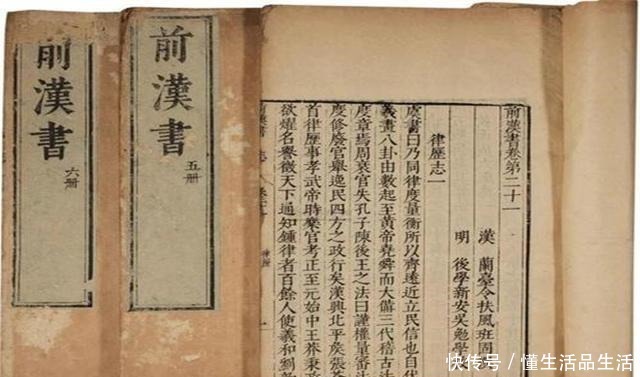 前漢書卷第二十一
漢 蘭臺令扶風班固
明 後學新安吳勉學
律歷志一
虞書曰乃同律度量衡所以齊遠近立民信也自
羲畫八卦由數起至黃帝堯舜而大備三代稽古法
度章焉周衰官失孔子陳後王之法曰謹權量審法
度修廢官舉逸民四方之政行矣漢興北平矦張
首律歷事孝武帝時樂官考正至元始中王莽秉政
欲燿名譽徵天下通知鍾律者百餘人使羲和劉
前漢書 志
前漢書
五册
前漢書
六册
快传号／懂生活品生活